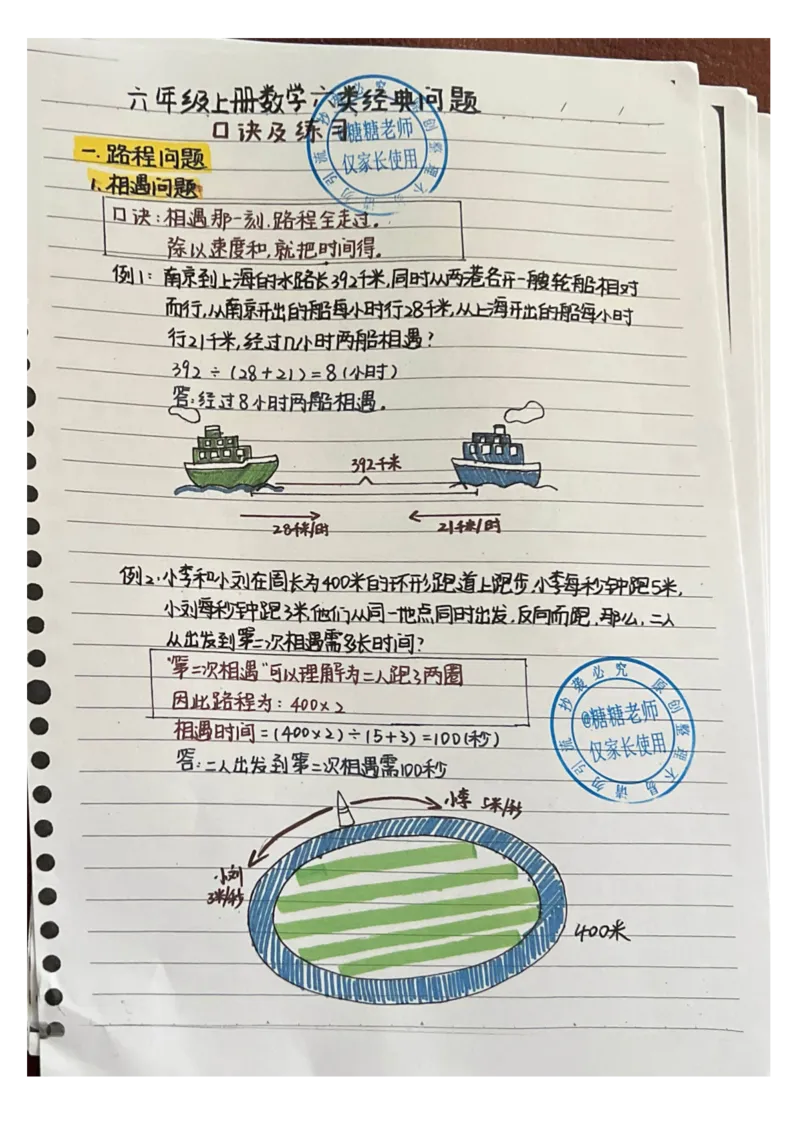 六年级上册数学六类经典问题
口诀及练习
一.路程问题
1.相遇问题
口诀:相遇那一刻.路程全走过.
除以速度和,就把时间得.
例1:南京到上海的水路长392千米,同时从两港各开一艘轮船相对
而行,从南京开出的船每小时行28千米,从上海开出的船每小时
行21千米,经过几小时两船相遇?
392÷(28+21)=8(小时)
答:经过8小时两船相遇.
392千米
28千米/时
21千米/时
例2.小李和小刘在周长为400米的环形跑道上跑步,小李每秒钟跑5米,
小刘每秒钟跑3米,他们从同一地点同时出发,反向而跑,那么,二人
从出发到第二次相遇需多长时间?
"第二次相遇"可以理解为二人跑了两圈
因此路程为:400×2
相遇时间=(400×2)÷(5+3)=100(秒)
答:二人出发到第二次相遇需100秒
小李 5米/秒
小刘
3米/秒
400米
@糖糖老师
仅家长使用
原创整理不易请勿引流抄袭必究
@糖糖老师
仅家长使用
原创整理不易请勿引流抄袭必究